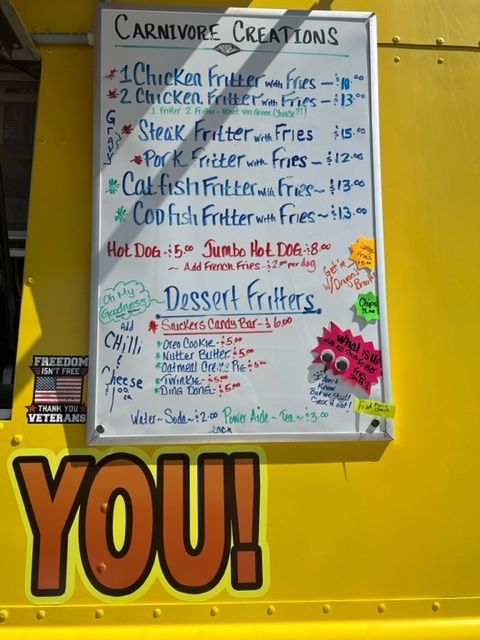 CARNIVORE CREATIONS
* 1 Chicken Fritter with Fries — $10.00
* 2 Chicken Fritter with Fries — $13.00
1 Fritter 2 Fritter - What you Gonna Choose?!!
GRAVY
* Steak Fritter with Fries $15.00
* Pork Fritter with Fries - $12.00
* Catfish Fritter with Fries ~ $13.00
* Codfish Fritter with Fries ~ $13.00
Hot Dog - $5.00 Jumbo Hot Dog - $8.00
~ Add French Fries - $2.00 per dog
Large Fries
Get'n
Chips
Oh My Goodness
Dessert Fritters
Add Chilli & Cheese $1.00 ea
* Snickers Candy Bar - $6.00
* Oreo Cookie - $5.00
* Nutter Butter - $5.00
* Oatmeal Creme Pie - $5.00
* Twinkie - $5.00
* Ding Dong - $5.00
What is it
with all this Fritter
I Don't Know But we Should Check it out!
Water ~ Soda ~ $2.00 Power Aide ~ Tea ~ $3.00
each
FREEDOM
ISN'T FREE
THANK YOU
VETERANS
YOU!